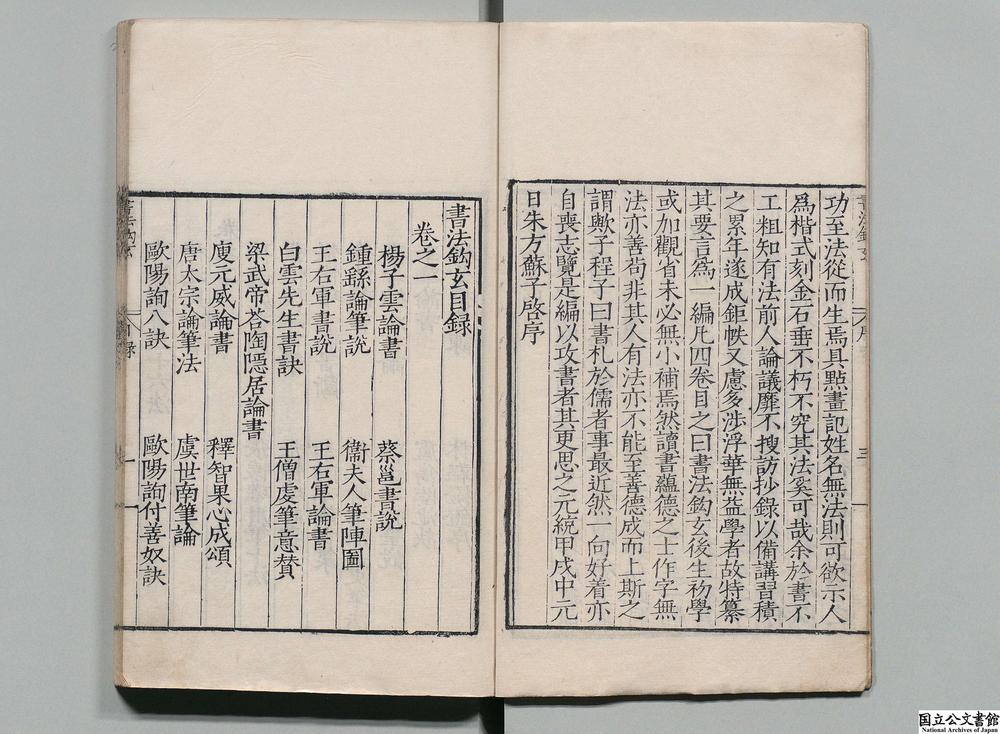 功至法從而生焉具點畫記姓名無法則可欲示人
爲楷式刻金石垂不朽不究其法奚可哉余於書不
工粗知有法前人論議靡不搜訪抄錄以備講習積
之累年遂成鉅帙又慮多涉浮華無益學者故特纂
其要言爲一編凡四卷目之曰書法鈎玄後生初學
或加觀省未必無小補焉然讀書蘊德之士作字無
法亦善苟非其人有法亦不能至善德成而上斯之
謂歟子程子曰書札於儒者事最近然一向好着亦
自喪志覽是編以攻書者其更思之元統甲戌中元
日朱方蘇子啓序
書法鈎玄目錄
卷之一
楊子雲論書 蔡邕書說
鍾繇論筆說 衞夫人筆陣圖
王右軍書說 王右軍論書
白雲先生書訣 王僧虔筆意賛
梁武帝荅陶隱居論書
庾元威論書 釋智果心成頌
唐太宗論筆法 虞世南筆論
歐陽詢八訣 歐陽詢付善奴訣
国立公文書館
National Archives of Japan